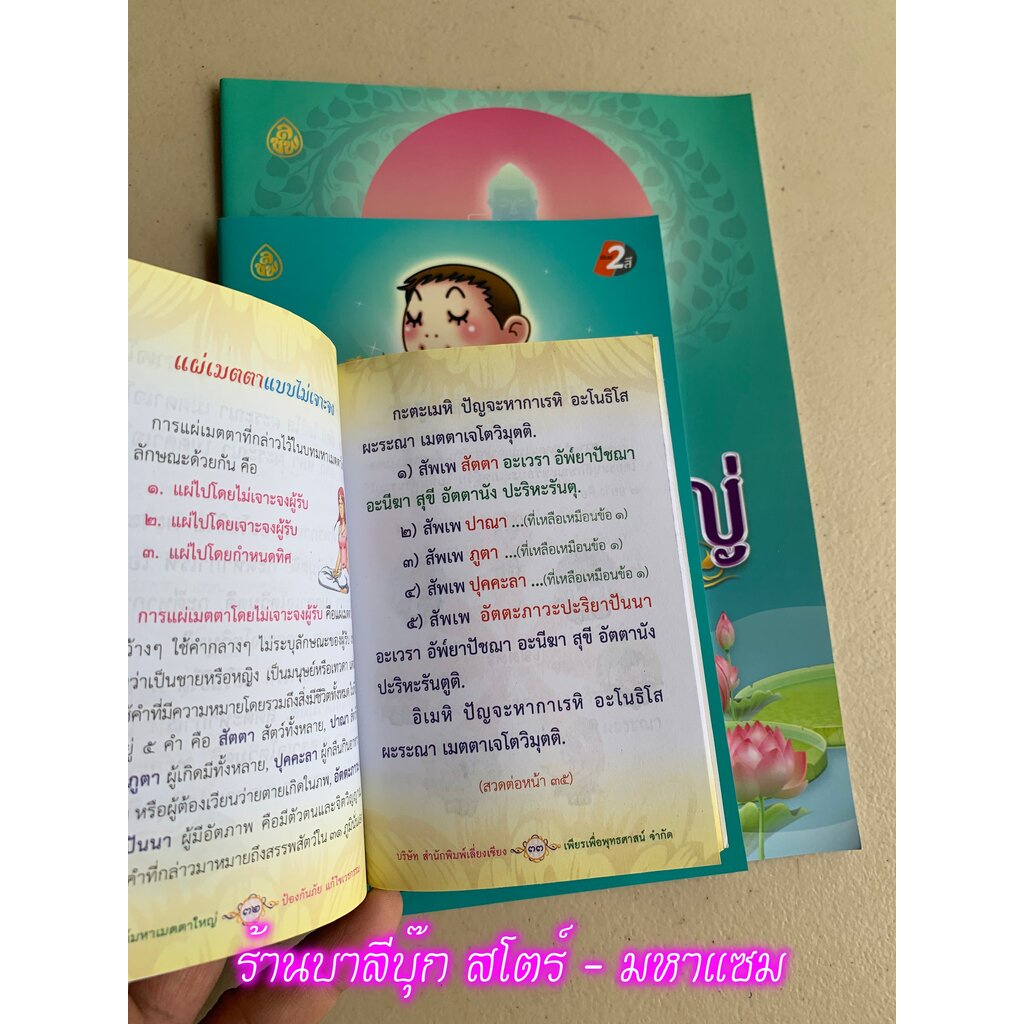 พิมพ์ 2 สี
แผ่เมตตาแบบไม่เจาะจง
การแผ่เมตตาที่กล่าวไว้ในบทมหาเมตตา
ลักษณะด้วยกัน คือ
๑. แผ่ไปโดยไม่เจาะจงผู้รับ
๒. แผ่ไปโดยเจาะจงผู้รับ
๓. แผ่ไปโดยกำหนดทิศ
การแผ่เมตตาโดยไม่เจาะจงผู้รับ คือแผ่เมตตา
ว้างๆ ใช้คำกลางๆ ไม่ระบุลักษณะของผู้รับ
ว่าเป็นชายหรือหญิง เป็นมนุษย์หรือเทวดา
ช้คำที่มีความหมายโดยรวมถึงสิ่งมีชีวิตทั้งหมด
ยู่ ๕ คำ คือ สัตตา สัตว์ทั้งหลาย, ปาณา
ภูตา ผู้เกิดมีทั้งหลาย, ปุคคะลา
หรือผู้ต้องเวียนว่ายตายเกิดในภพ,
ปันนา ผู้มีอัตภาพ คือมีตัวตนและจิตวิญญาณ
คำที่กล่าวมาหมายถึงสรรพสัตว์ใน ๓๑ ภูมิ
์มหาเมตตาใหญ่ ๓๒ ป้องกันภัย แก้ไขเวรกรรม
กะตะเมหิ ปัญจะหากาเรหิ อะโนธิโส
ผะระณา เมตตาเจโตวิมุตติ.
๑) สัพเพ สัตตา อะเวรา อัพ์ยาปัชฌา
อะนีฆา สุขี อัตตานัง ปะริหะรันตุ.
๒) สัพเพ ปาณา ...(ที่เหลือเหมือนข้อ ๑)
๓) สัพเพ ภูตา ...(ที่เหลือเหมือนข้อ ๑)
๔) สัพเพ ปุคคะลา ...(ที่เหลือเหมือนข้อ ๑)
๕) สัพเพ อัตตะภาวะปะริยาปันนา
อะเวรา อัพ์ยาปัชฌา อะนีฆา สุขี อัตตานัง
ปะริหะรันตูติ.
อิเมหิ ปัญจะหากาเรหิ อะโนธิโส
ผะระณา เมตตาเจโตวิมุตติ.
(สวดต่อหน้า ๓๕)
บริษัท สำนักพิมพ์เลี่ยงเชียง ๓๓ เพียรเพื่อพุทธศาสน์ จำกัด
ร้านบาลีบุ๊ก สโตร์ - มหาแซม